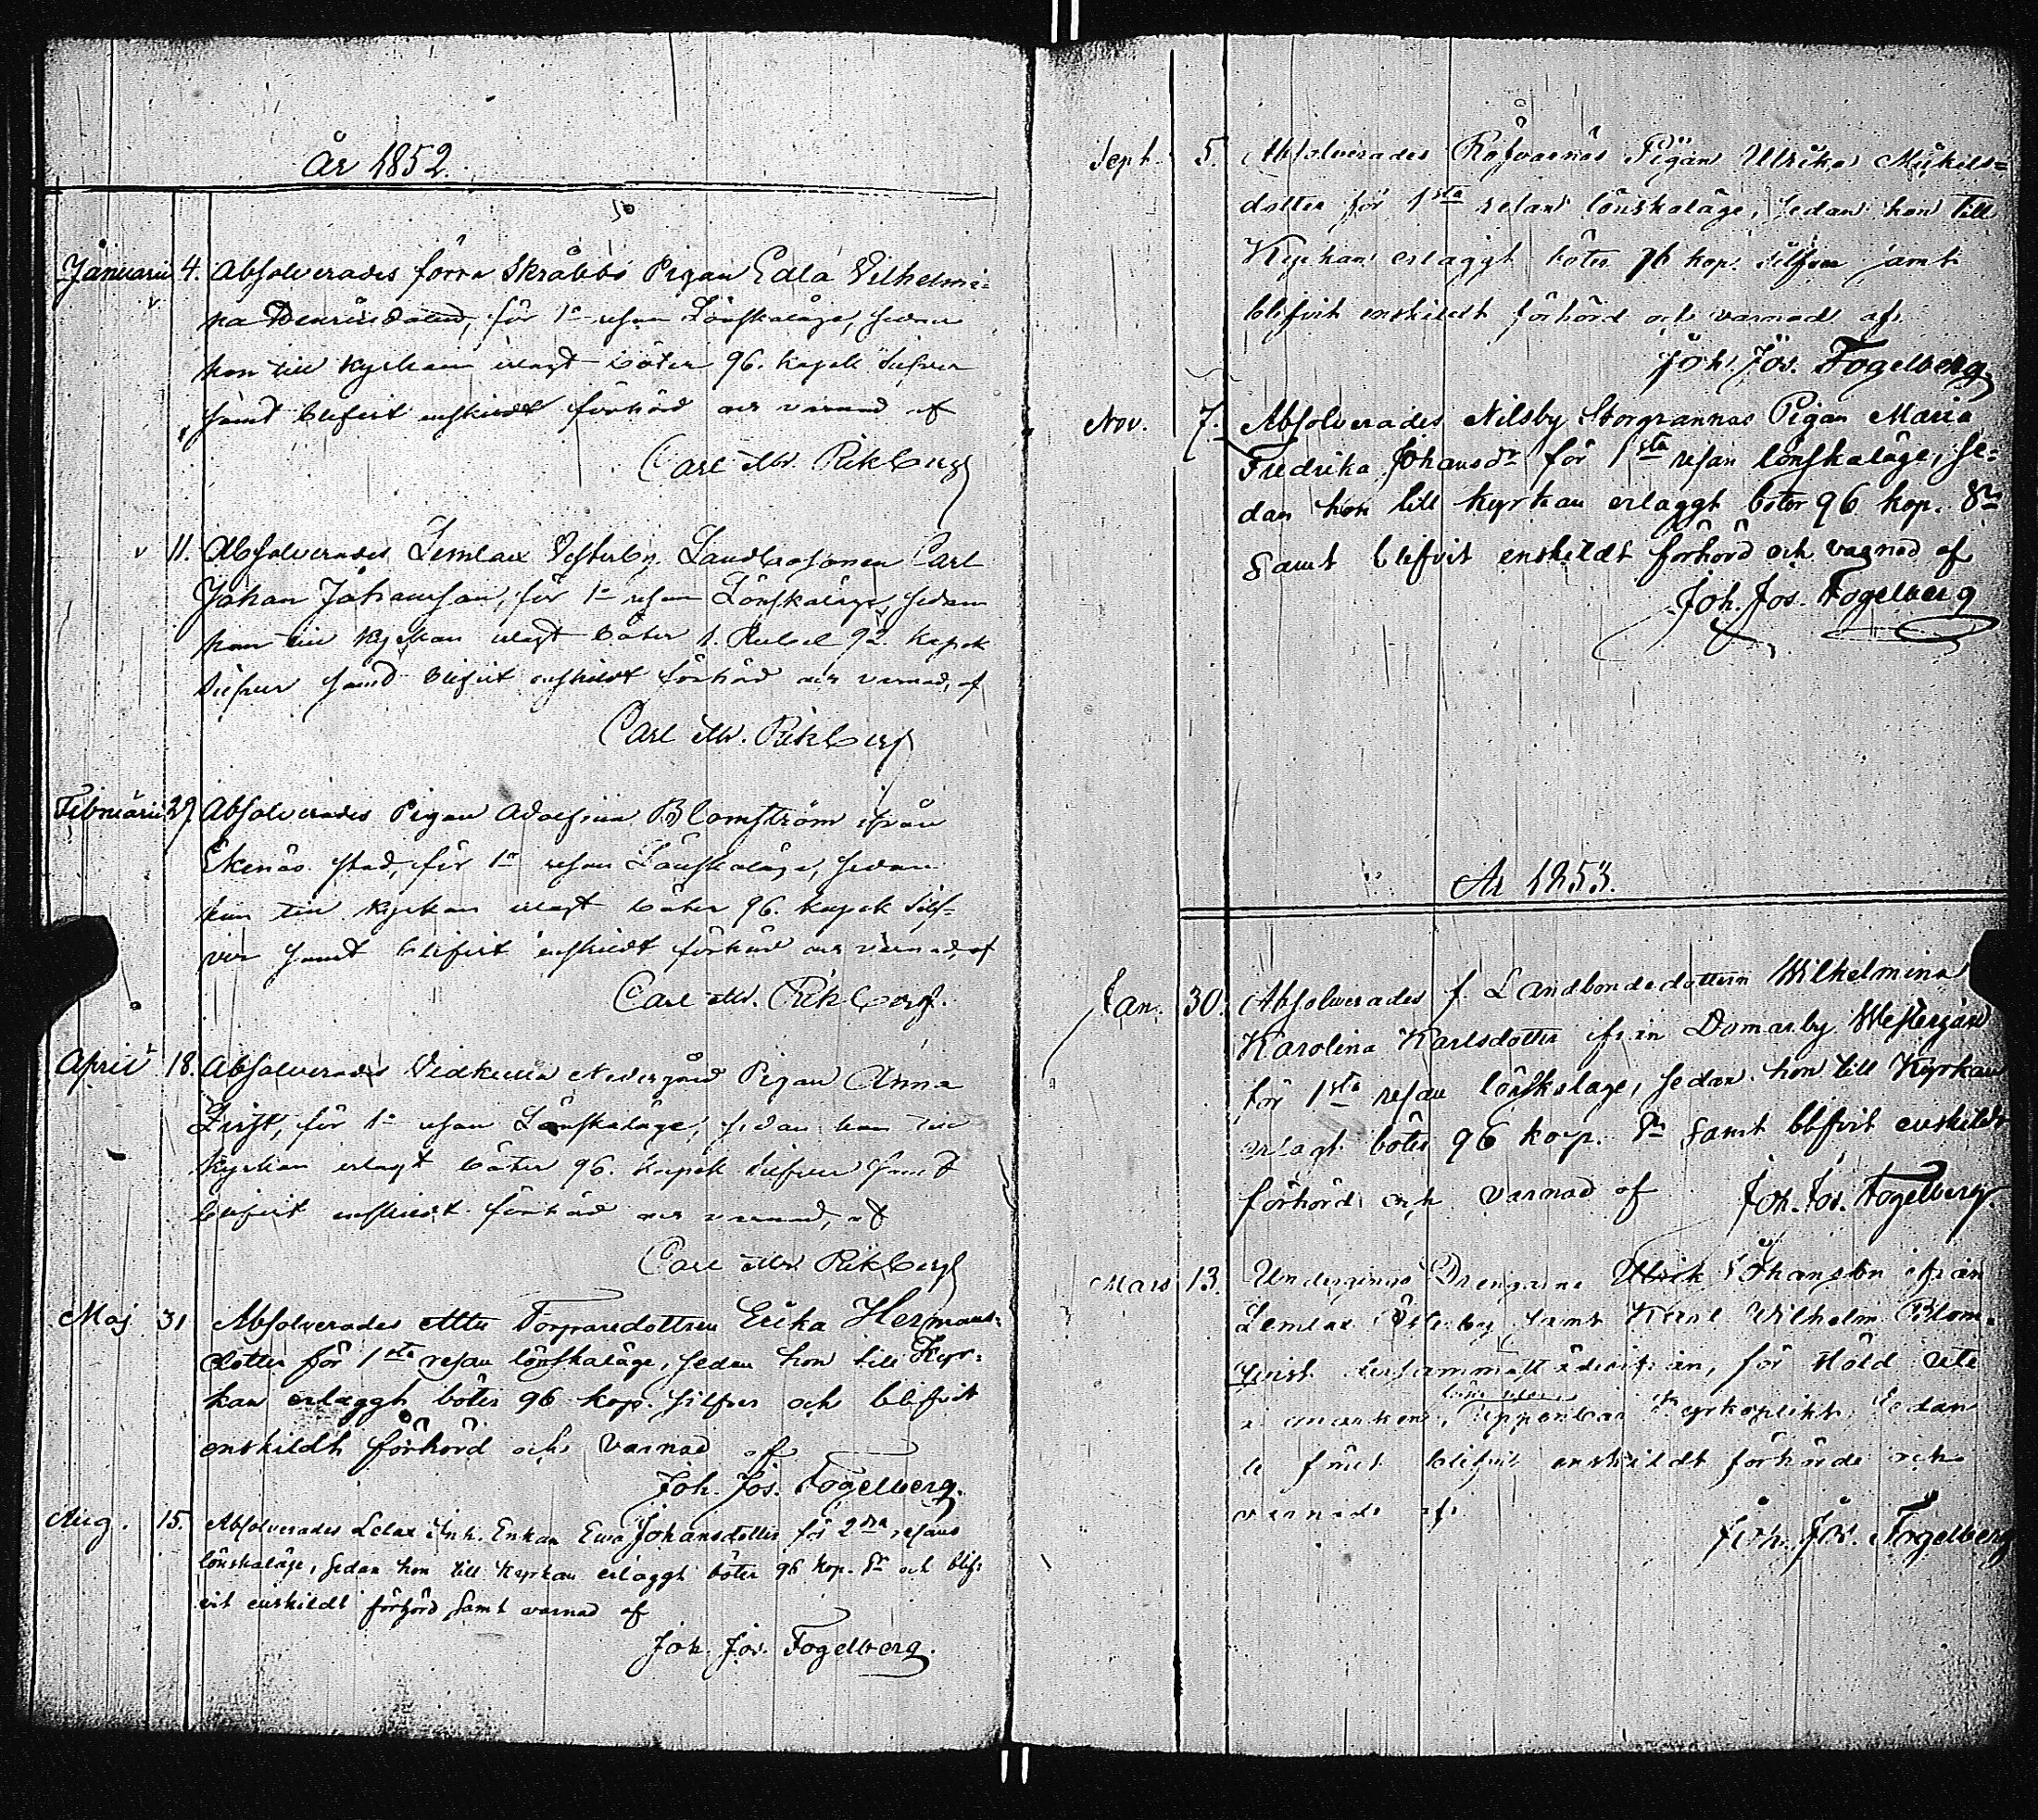 År 1852.
Januarii 4. Absolverades förra Skräbbö Pigan Edla Vilhelmi-
na för 1a resan Lönskaläge, sedan
hon till Kyrkan erlagt böter 96. kopek Silfver
samt blifvit enskildt förhörd och varnad af
Carl Mr. Rikberg
11. Absolverades Lemlax Vesterby Landbosonen Carl
Johan Johansson, för 1a resan Lönskaläge, sedan
han till Kyrkan erlagt böter 1. Rubel 92. kopek
Silfver samt blifvit enskildt förhörd och varnad, af
Carl Mr. Rikberg
Februarii 29. Absolverades Pigan Adolfina Blomström ifrån
Ekenäs stad, för 1a resan Lönskaläge, sedan
hon till Kyrkan erlagt böter 96. kopek Silf-
ver samt blifvit enskildt förhörd och varnad, af
Carl Mr. Rikberg.
April 18. Absolverades Nedergård Pigan Anna
för 1a resan Lönskaläge, sedan hon till
Kyrkan erlagt böter 96. kopek Silfver samt
blifvit enskildt förhörd och varnad, af
Carl Mr. Rikberg
Maj 31 Absolverades Torparedottren Erika Hermans-
dotter för 1sta resan lönskaläge, sedan hon till Kyr-
kan erlaggt böter 96 kop. silfver och blifvit
enskildt förhörd och varnad af
Joh. Jos. Fogelberg.
Aug. 15. Absolverades Lelax Inh. Enkan Ewa Johansdotter för 2dra resans
lönskaläge, sedan hon till Kyrkan erlaggt böter 96 kop. Sr och blif-
vit enskildt förhörd samt varnad af
Joh. Jos. Fogelberg.
Sept. 5. Absolverades Räfvarnäs Pigan Ulrika Mickels-
dotter för 1sta resans lönskaläge, sedan hon till
Kyrkan erlaggt böter 96 kop. silfver jämte
blifvit enskildt förhörd och varnad af
Joh. Jos. Fogelberg.
Nov. 7. Absolverades Nilsby Storgrannas Pigan Maria
Fredrika Johansdr för 1sta resan lönskaläge, se-
dan hon till Kyrkan erlaggt böter 96 kop. Sr
samt blifvit enskildt förhörd och varnad af
Joh. Jos. Fogelberg
År 1853.
Jan. 30. Absolverades f. Landbondedottern Wilhelmina
Karolina Karlsdotter ifrån Domarby Westergård
för 1sta resan lönskaläge, sedan hon till Kyrkan
erlagt böter 96 kop. Sr samt blifvit enskildt
förhörd och varnad af Joh. Jos. Fogelberg.
Mars 13. Undergingo Drengarne Ulrik Johansson ifrån
Lemlax Österby samt Karl Wilhelm Blom-
qvist för stöld
uppenbar Kyrkoplikt, sedan
de blifvit enskildt förhörde och
varnade af
Joh. Jos. Fogelberg